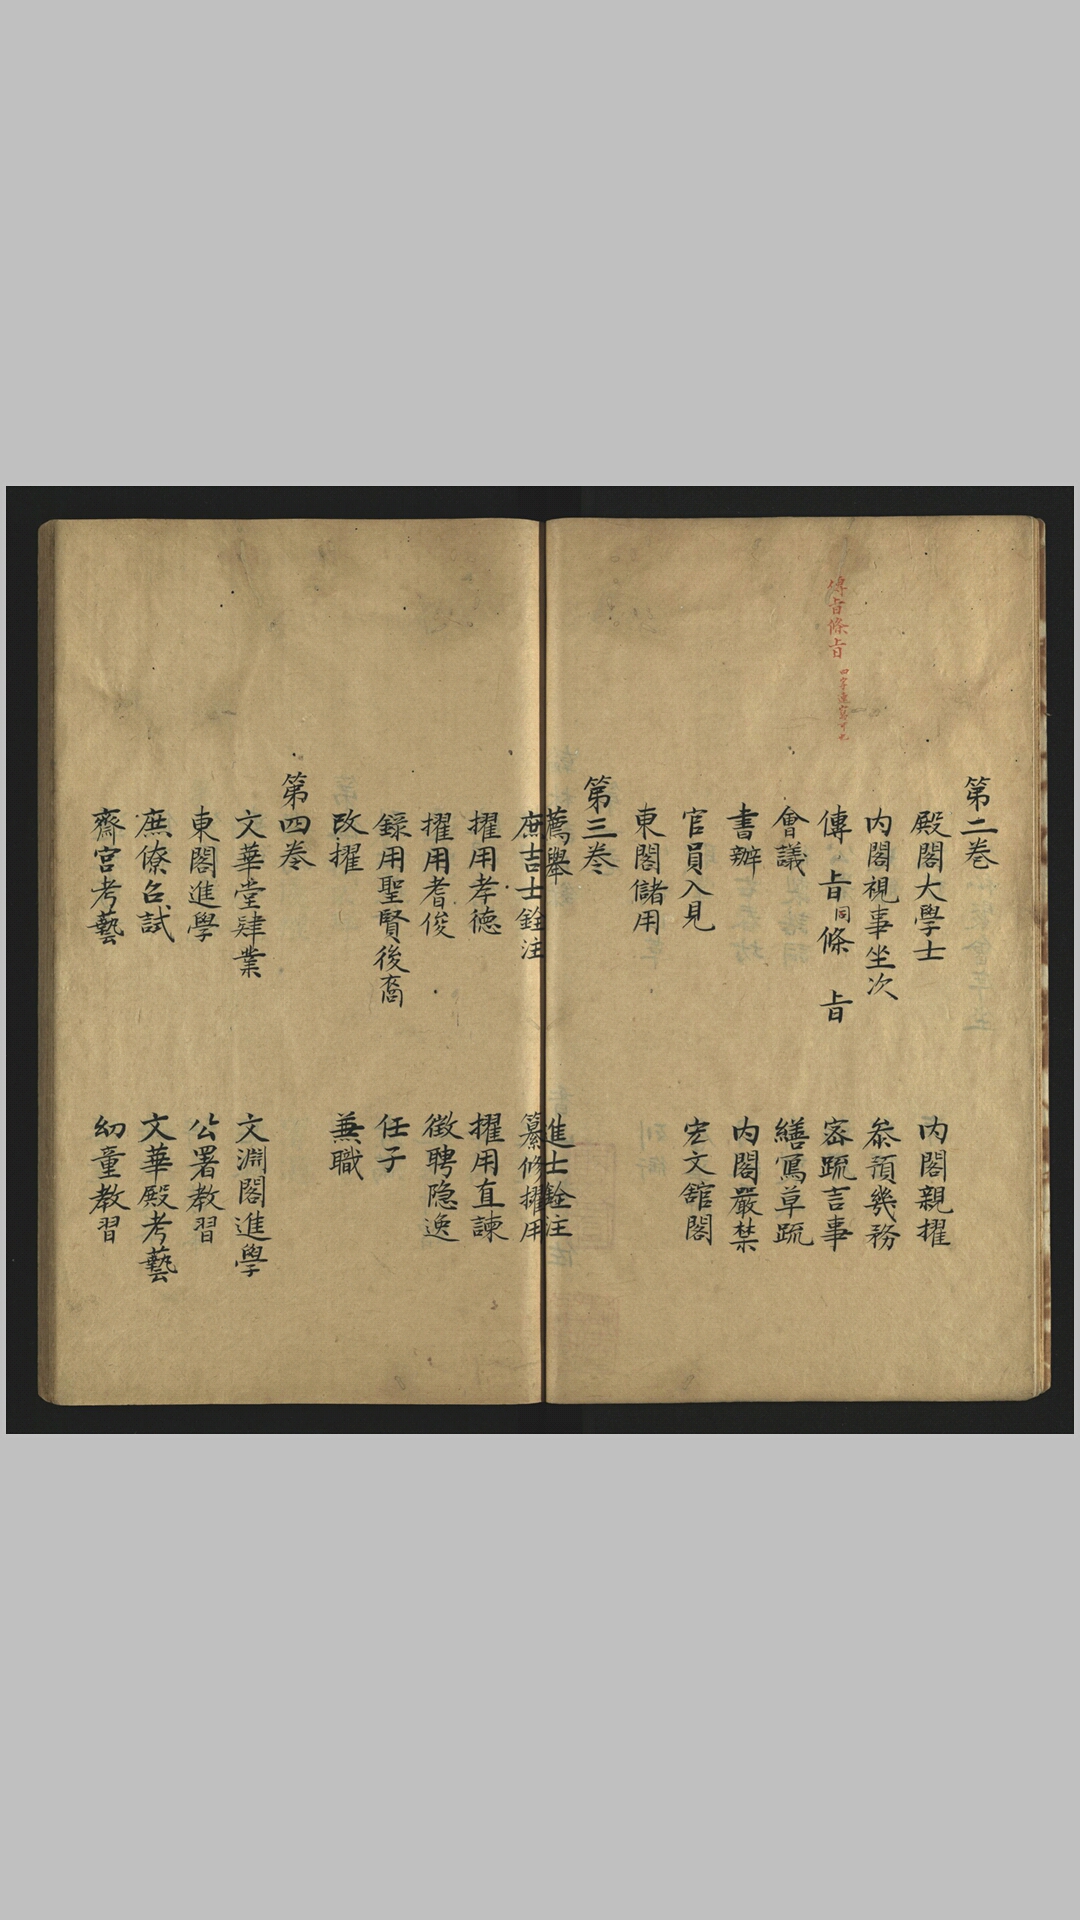 傳旨條旨
四字連寫可也
第二卷
殿閣大學士
内閣親擢
内閣視事坐次
叅預幾務
傳 旨同條 旨
密䟽言事
會議
繕寫草䟽
書辦
内閣嚴禁
官員入見
宏文舘閣
東閣儲用
第三卷
薦舉
進士銓注
庶吉士銓注
纂修擢用
擢用孝德
擢用直諫
擢用耆俊
徵聘隐逸
録用聖賢後裔
任子
改擢
兼職
第四卷
文華堂肄業
文淵閣進學
東閣進學
公署教習
庶僚召試
文華殿考藝
齋宫考藝
幼童教習